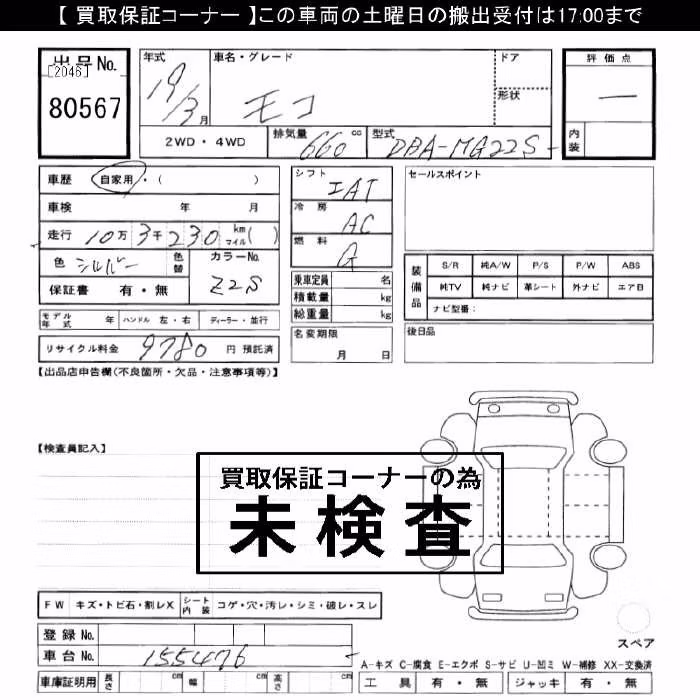 【 買取保証コーナー 】この車両の土曜日の搬出受付は17:00まで
出品No.
[2046]
80567
年式 19/3月
車名・グレード モコ
ドア
形状
評価点 ―
内装
2WD・4WD
排気量 660 cc
型式 DBA-MG22S-
車歴 自家用・( )
車検 年 月
走行 10万3千230 km マイル( )
色 シルバー 色替 カラーNo. Z2S
保証書 有・無
モデル年式 年 ハンドル 左・右 ディーラー・並行
リサイクル料金 9780 円 預託済
シフト IAT
冷房 AC
燃料 G
乗車定員 名
積載量 kg
総重量 kg
名変期限 月 日
セールスポイント
装備品
S/R 純A/W P/S P/W ABS
純TV 純ナビ 革シート 外ナビ エアB
ナビ型番：
後日品
【出品店申告欄(不良箇所・欠品・注意事項等)】
【検査員記入】
買取保証コーナーの為
未検査
FW キズ・トビ石・割レX シート内装 コゲ・穴・汚レ・シミ・破レ・スレ
登録No.
車台No. 155476
車庫証明用 長さ cm 幅 cm 高さ cm
スペア
A-キズ C-腐食 E-エクボ S-サビ U-凹ミ W-補修 XX-交換済
工具 有・無 ジャッキ 有・無